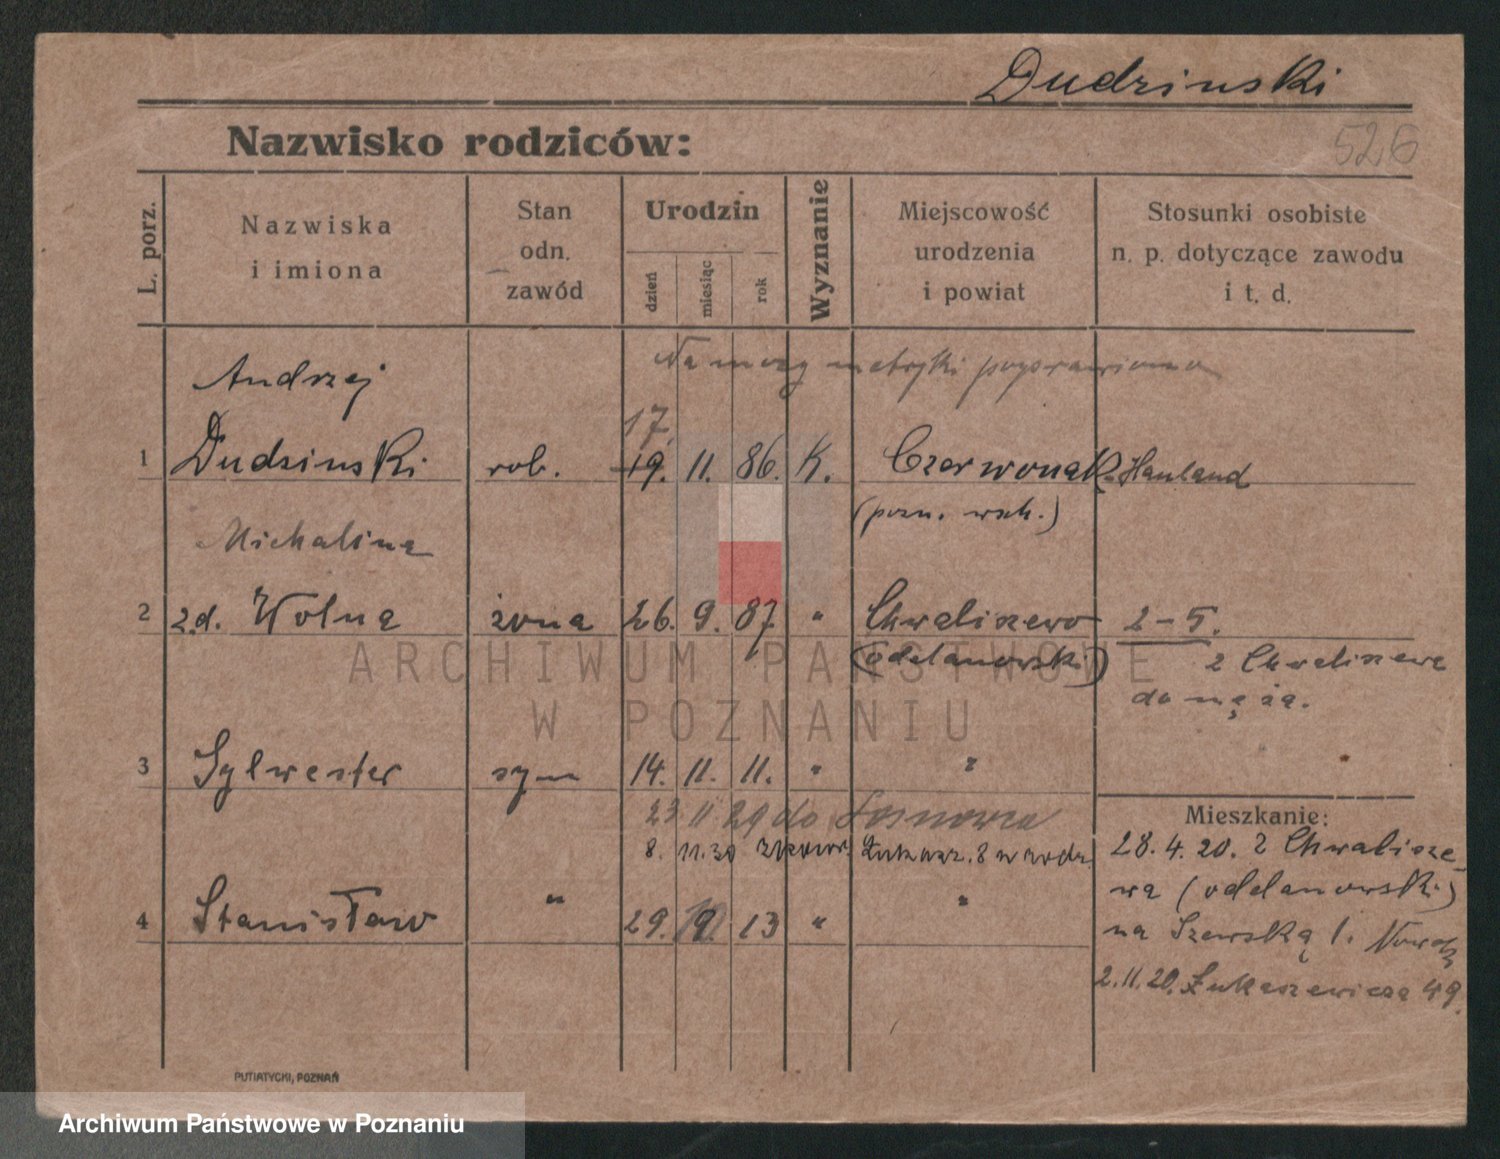 Dudzinski
Nazwisko rodziców:
526
L. porz.
Nazwiska
i imiona
Stan
odn.
zawód
Urodzin
dzień
miesiąc
rok
Wyznanie
Miejscowość
urodzenia
i powiat
Stosunki osobiste
n. p. dotyczące zawodu
i t. d.
Na mocy metryki poprawiono
Andrzej
17.
1 Dudzinski rob. 19. 11. 86. K. Czerwonak Hauland
(pozn. wsch.)
Michalina
2 z.d. Wolna żona 26. 9. 87 " Chwaliszewo 2-5.
(odolanowski) z Chwaliszewa
do męża.
ARCHIWUM PAŃSTWOWE
W POZNANIU
3 Sylwester syn 14. 11. 11. " "
23 11 29 do Sosnowca
8. 11. 30 Łukasz. 8 w rodz.
4 Stanisław " 29. 13 " "
Mieszkanie:
28. 4. 20. z Chwalisze-
wa (odolanowski)
na Szewską 1.
2. 11. 20. Łukaszewicza 49.
PUTIATYCKI, POZNAŃ
Archiwum Państwowe w Poznaniu